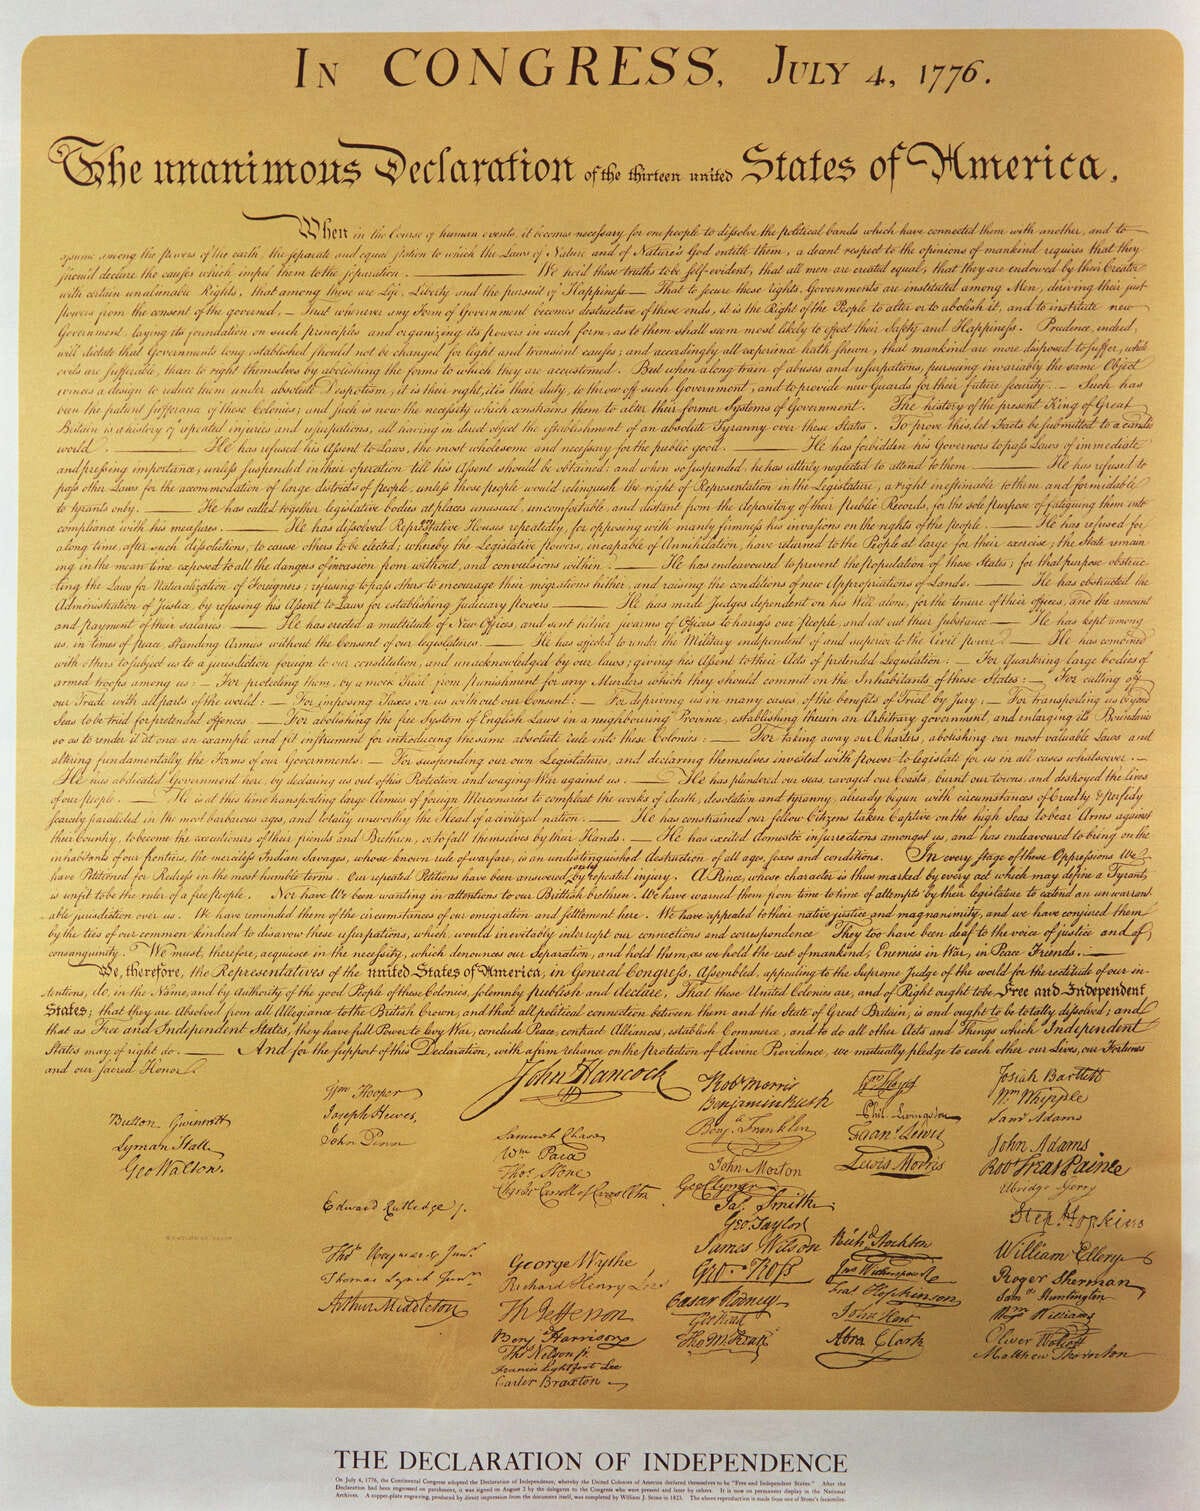 In CONGRESS, July 4, 1776.
The unanimous Declaration of the thirteen united States of America,
When in the Course of human events, it becomes necessary for one people to dissolve the political bands which have connected them with another, and to
assume among the powers of the earth, the separate and equal station to which the Laws of Nature and of Nature's God entitle them, a decent respect to the opinions of mankind requires that they
should declare the causes which impel them to the separation. — We hold these truths to be self-evident, that all men are created equal, that they are endowed by their Creator
with certain unalienable Rights, that among these are Life, Liberty and the pursuit of Happiness — That to secure these rights, Governments are instituted among Men, deriving their just
powers from the consent of the governed, — That whenever any Form of Government becomes destructive of these ends, it is the Right of the People to alter or to abolish it, and to institute new
Government, laying its foundation on such principles and organizing its powers in such form, as to them shall seem most likely to effect their Safety and Happiness. Prudence, indeed,
will dictate that Governments long established should not be changed for light and transient causes; and accordingly all experience hath shewn, that mankind are more disposed to suffer, while
evils are sufferable, than to right themselves by abolishing the forms to which they are accustomed. But when a long train of abuses and usurpations, pursuing invariably the same Object
evinces a design to reduce them under absolute Despotism, it is their right, it is their duty, to throw off such Government, and to provide new Guards for their future security. — Such has
been the patient sufferance of these Colonies; and such is now the necessity which constrains them to alter their former Systems of Government. The history of the present King of Great
Britain is a history of repeated injuries and usurpations, all having in direct object the establishment of an absolute Tyranny over these States. To prove this, let Facts be submitted to a candid
world. — He has refused his Assent to Laws, the most wholesome and necessary for the public good. — He has forbidden his Governors to pass Laws of immediate
and pressing importance, unless suspended in their operation till his Assent should be obtained; and when so suspended, he has utterly neglected to attend to them. — He has refused to
pass other Laws for the accommodation of large districts of people, unless those people would relinquish the right of Representation in the Legislature, a right inestimable to them and formidable
to tyrants only. — He has called together legislative bodies at places unusual, uncomfortable, and distant from the depository of their Public Records, for the sole purpose of fatiguing them into
compliance with his measures. — He has dissolved Representative Houses repeatedly, for opposing with manly firmness his invasions on the rights of the people. — He has refused for
a long time, after such dissolutions, to cause others to be elected; whereby the Legislative powers, incapable of Annihilation, have returned to the People at large for their exercise; the State remain
ing in the mean time exposed to all the dangers of invasion from without, and convulsions within. — He has endeavoured to prevent the population of these States; for that purpose obstruc
ting the Laws for Naturalization of Foreigners; refusing to pass others to encourage their migrations hither, and raising the conditions of new Appropriations of Lands. — He has obstructed the
Administration of Justice, by refusing his Assent to Laws for establishing Judiciary powers — He has made Judges dependent on his Will alone, for the tenure of their offices, and the amount
and payment of their salaries — He has erected a multitude of New Offices, and sent hither swarms of Officers to harrass our people, and eat out their substance — He has kept among
us, in times of peace, Standing Armies without the Consent of our legislatures. — He has affected to render the Military independent of and superior to the Civil power. — He has combined
with others to subject us to a jurisdiction foreign to our constitution, and unacknowledged by our laws; giving his Assent to their Acts of pretended Legislation: — For Quartering large bodies of
armed troops among us: — For protecting them, by a mock Trial from punishment for any Murders which they should commit on the Inhabitants of these States: — For cutting off
our Trade with all parts of the world: — For imposing Taxes on us without our Consent: — For depriving us in many cases, of the benefits of Trial by Jury: — For transporting us beyond
Seas to be tried for pretended offences — For abolishing the free System of English Laws in a neighbouring Province, establishing therein an Arbitrary government, and enlarging its Boundaries
so as to render it at once an example and fit instrument for introducing the same absolute rule into these Colonies: — For taking away our Charters, abolishing our most valuable Laws and
altering fundamentally the Forms of our Governments: — For suspending our own Legislatures, and declaring themselves invested with power to legislate for us in all cases whatsoever. —
He has abdicated Government here, by declaring us out of his Protection and waging War against us. — He has plundered our seas, ravaged our Coasts, burnt our towns, and destroyed the lives
of our people. — He is at this time transporting large Armies of foreign Mercenaries to compleat the works of death, desolation and tyranny, already begun with circumstances of Cruelty & perfidy
scarcely paralleled in the most barbarous ages, and totally unworthy the Head of a civilized nation. — He has constrained our fellow Citizens taken Captive on the high Seas to bear Arms against
their Country, to become the executioners of their friends and Brethren, or to fall themselves by their Hands. — He has excited domestic insurrections amongst us, and has endeavoured to bring on the
inhabitants of our frontiers, the merciless Indian Savages, whose known rule of warfare, is an undistinguished destruction of all ages, sexes and conditions. In every stage of these Oppressions We
have Petitioned for Redress in the most humble terms: Our repeated Petitions have been answered only by repeated injury. A Prince, whose character is thus marked by every act which may define a Tyrant,
is unfit to be the ruler of a free people. Nor have We been wanting in attentions to our Brittish brethren. We have warned them from time to time of attempts by their legislature to extend an unwarrant
able jurisdiction over us. We have reminded them of the circumstances of our emigration and settlement here. We have appealed to their native justice and magnanimity, and we have conjured them
by the ties of our common kindred to disavow these usurpations, which, would inevitably interrupt our connections and correspondence They too have been deaf to the voice of justice and of
consanguinity. We must, therefore, acquiesce in the necessity, which denounces our Separation, and hold them, as we hold the rest of mankind, Enemies in War, in Peace Friends. —
We, therefore, the Representatives of the united States of America, in General Congress, Assembled, appealing to the Supreme Judge of the world for the rectitude of our in-
tentions, do, in the Name, and by Authority of the good People of these Colonies, solemnly publish and declare, That these United Colonies are, and of Right ought to be Free and Independent
States; that they are Absolved from all Allegiance to the British Crown, and that all political connection between them and the State of Great Britain, is and ought to be totally dissolved; and
that as Free and Independent States, they have full Power to levy War, conclude Peace, contract Alliances, establish Commerce, and to do all other Acts and Things which Independent
States may of right do. — And for the support of this Declaration, with a firm reliance on the protection of divine Providence, we mutually pledge to each other our Lives, our Fortunes
and our sacred Honor.
Button Gwinnett
Lyman Hall
Geo Walton.
Wm Hooper
Joseph Hewes,
John Penn
Edward Rutledge /.
Thos Heyward Junr.
Thomas Lynch Junr.
Arthur Middleton
John Hancock
Samuel Chase
Wm Paca
Thos Stone
Charles Carroll of Carrollton
George Wythe
Richard Henry Lee
Th Jefferson
Benj Harrison
Thos Nelson jr.
Francis Lightfoot Lee
Carter Braxton
Robt Morris
Benjamin Rush
Benj Franklin
John Morton
Geo Clymer
Jas. Smith
Geo. Taylor
James Wilson
Geo. Ross
Caesar Rodney
Geo Read
Tho M:Kean
Wm Floyd
Phil. Livingston
Frans. Lewis
Lewis Morris
Richd Stockton
Jno Witherspoon
Fras Hopkinson
John Hart
Abra Clark
Josiah Bartlett
Wm Whipple
Saml Adams
John Adams
Robt Treat Paine
Elbridge Gerry
Step Hopkins
William Ellery
Roger Sherman
Saml Huntington
Wm Williams
Oliver Wolcott
Matthew Thornton
THE DECLARATION OF INDEPENDENCE
On July 4, 1776, the Continental Congress adopted the Declaration of Independence, whereby the United Colonies of America declared themselves to be "Free and Independent States." After the
Declaration had been engrossed on parchment, it was signed on August 2 by the delegates to the Congress who were present and later by others. It is now on permanent display in the National
Archives. A copper-plate engraving, produced by direct impression from the document itself, was completed by William J. Stone in 1823. The above reproduction is made from one of Stone's facsimiles.